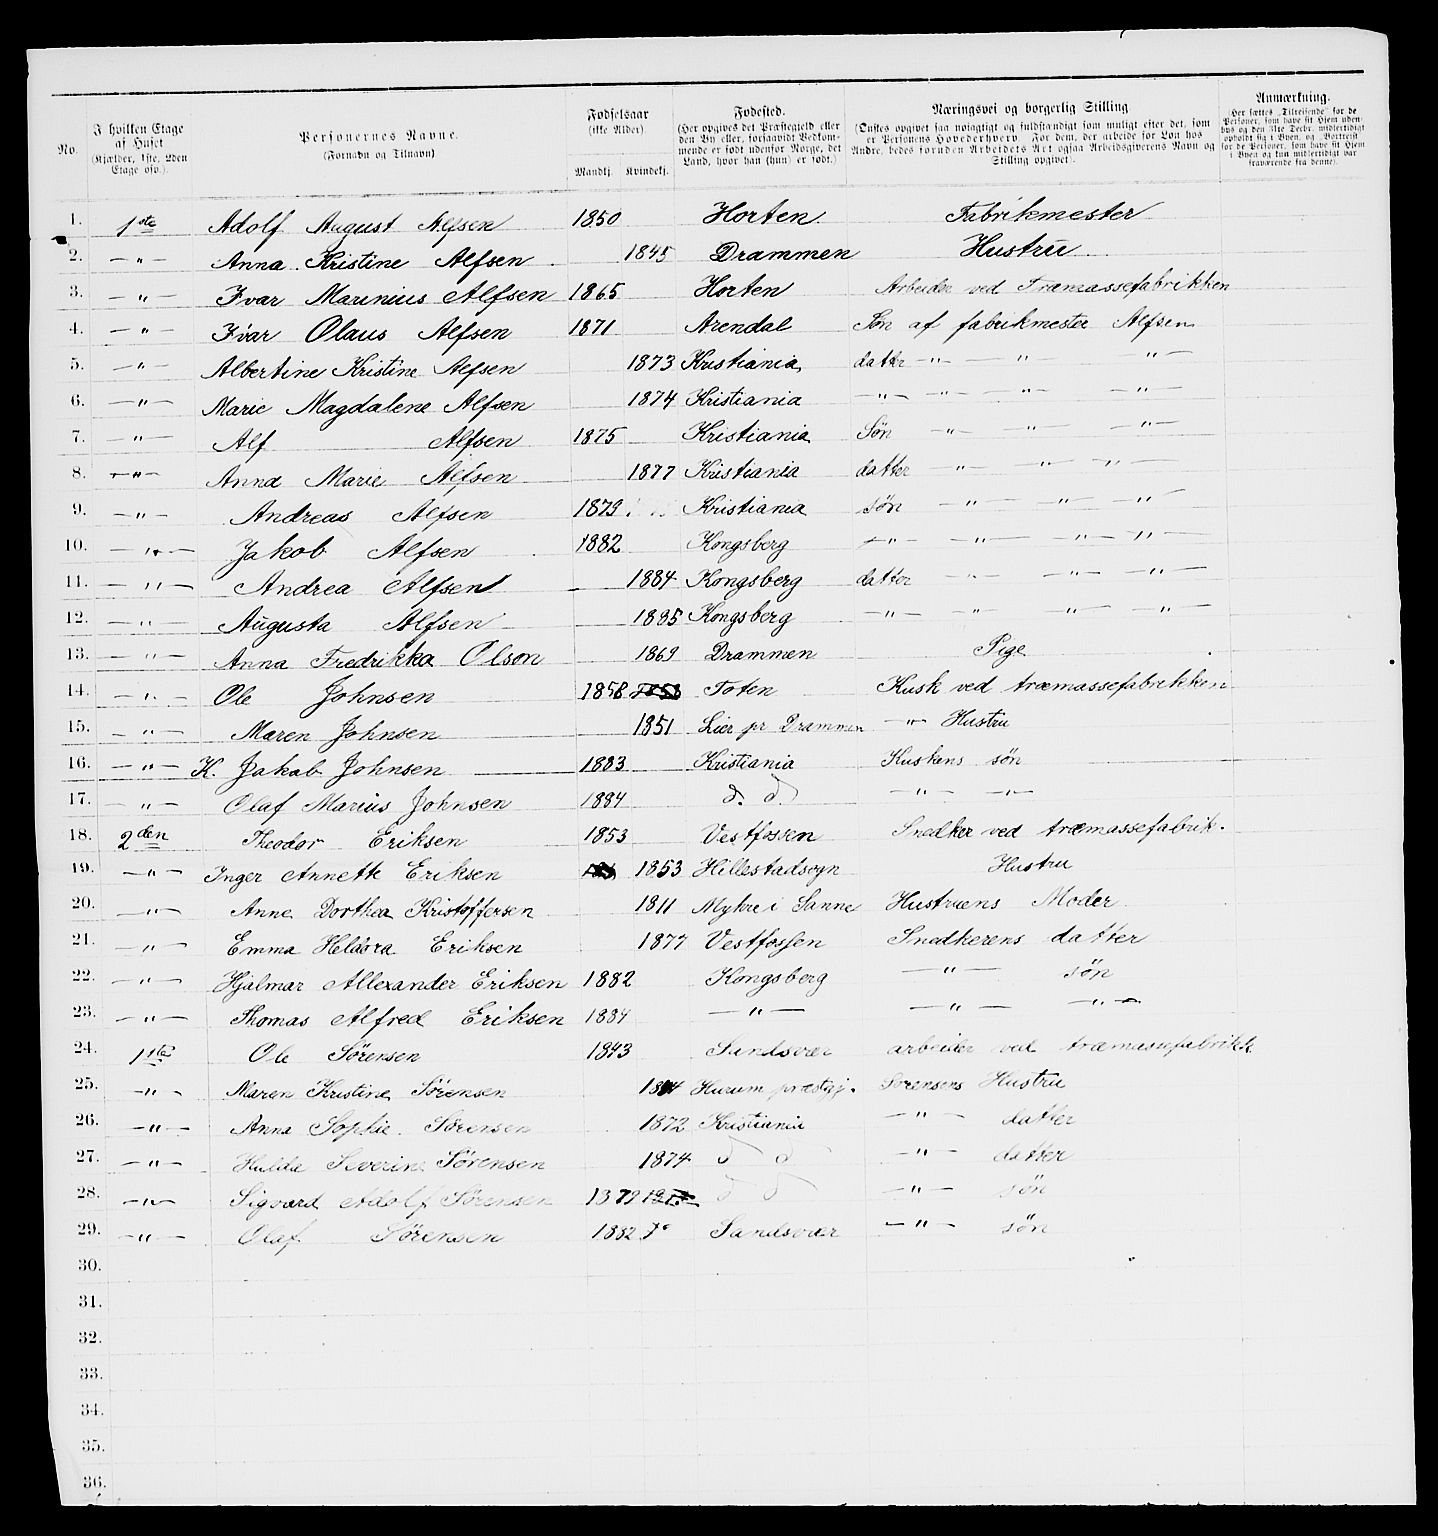 No.
I hvilken Etage af Huset (Kjælder, 1ste, 2den Etage osv.).
Personernes Navne. (Fornavn og Tilnavn)
Fødselsaar (ikke Alder)
Mandkj. Kvindekj.
Fødested. (Her opgives det Præstegjeld eller den By eller, forsaavidt Vedkommende er født udenfor Norge, det Land, hvor han (hun) er født.)
Næringsvei og borgerlig Stilling (Ønskes opgivet saa nøiagtigt og fuldstændigt som muligt efter det, som er Personens Hovederhverv. For dem, der arbeide for Løn hos Andre, bedes foruden Arbeidets Art ogsaa Arbeidsgiverens Navn og Stilling opgivet).
Anmærkning. (Her sættes „Tilreisende“ for de Personer, som have sit Hjem udenbys og den 31te Decbr. midlertidigt opholdt sig i Byen, og „Bortreist“ for de Personer, som have sit Hjem i Byen og kun midlertidigt var fraværende fra denne).
1. 1ste Adolf August Alfsen 1850 Horten Fabrikmester
2. — " — Anna Kristine Alfsen 1845 Drammen Hustru
3. — " — Ivar Marinius Alfsen 1865 Horten Arbeider ved Træmassefabrikken
4. — " — Ivar Olaus Alfsen 1871 Arendal Søn af fabrikmester Alfsen
5. — " — Albertine Kristine Alfsen 1873 Kristiania datter — " — — " — " —
6. — " — Marie Magdalene Alfsen 1874 Kristiania — " — — " — — " — — " —
7. — " — Alf Alfsen 1875 Kristiania Søn — " — — " — — " —
8. — " — Anna Marie Alfsen 1877 Kristiania datter — " — — " — — " —
9. — " — Andreas Alfsen 1879 Kristiania søn — " — — " — — " —
10. — " — Jakob Alfsen 1882 Kongsberg — " — — " — — " — " —
11. — " — Andrea Alfsen 1884 Kongsberg datter — " — — " — — " —
12. — " — Augusta Alfsen 1885 Kongsberg — " — — " — — " — — " —
13. — " — Anna Fredrikka Olson 1869 Drammen Pige
14. — " — Ole Johnsen 1858 Toten Kusk ved træmassefabrikken
15. — " — Maren Johnsen 1851 Lier pr Drammen — " — Hustru
16. — " — K. Jakob Johnsen 1883 Kristiania Kuskens søn
17. — " — Olaf Marius Johnsen 1884 d. d. — " — — " —
18. 2den Theodor Eriksen 1853 Vestfossen Snedker ved træmassefabrik.
19. — " — Inger Annette Eriksen 1853 Hillestadsogn Hustru
20. — " — Anne Dorthea Kristoffersen 1811 Hustruens Moder
21. — " — Emma Heldora Eriksen 1877 Vestfossen Snedkerens datter
22. — " — Hjalmar Allexander Eriksen 1882 Kongsberg — " — søn
23. — " — Thomas Alfred Eriksen 1884 — " — — " — — " —
24. 1ste Ole Sørensen 1843 Sandsvær arbeider ved træmassefabrikk
25. — " — Maren Kristine Sørensen Hurum præstgj. Sørensens Hustru
26. — " — Anna Sophie Sørensen 1872 Kristiania — " — datter
27. — " — Hulda Severine Sørensen 1874 d d — " — datter
28. — " — Sigvard Adolf Sørensen 1879 d d — " — søn
29. — " — Olaf Sørensen 1882 Sandsvær — " — søn
30.
31.
32.
33.
34.
35.
36.